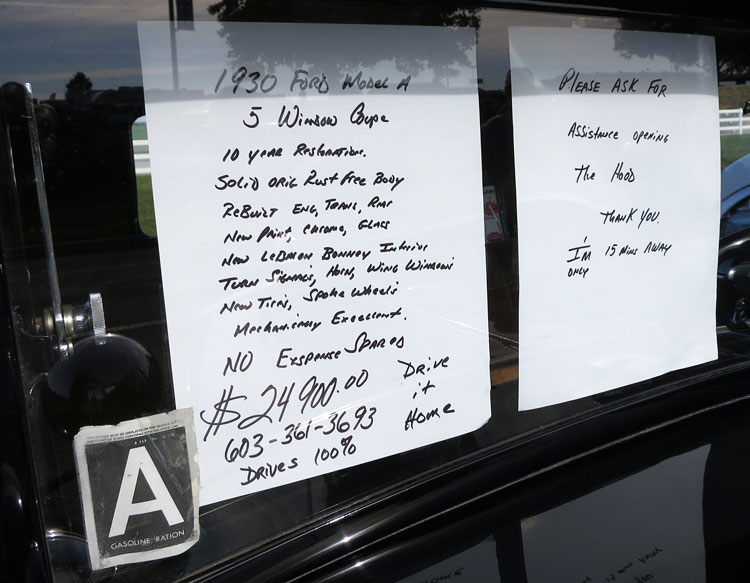 1930 Ford Model A
5 Window Coupe
10 year Restoration.
Solid orig Rust Free Body
ReBuilt Eng, Trans,
New Paint, Chrome, Glass
New LeBaron Bonney Interior
Turn Signals, Horn, Wing Windows
New Tires, Spoke Wheels
Mechanically Excellent.
NO Exspense Spared
$24900.00
603-361-3693
Drives 100%
Drive
it
Home
Please Ask For
Assistance opening
The Hood
Thank you.
I'm 15 mins Away
only
A
GASOLINE RATION